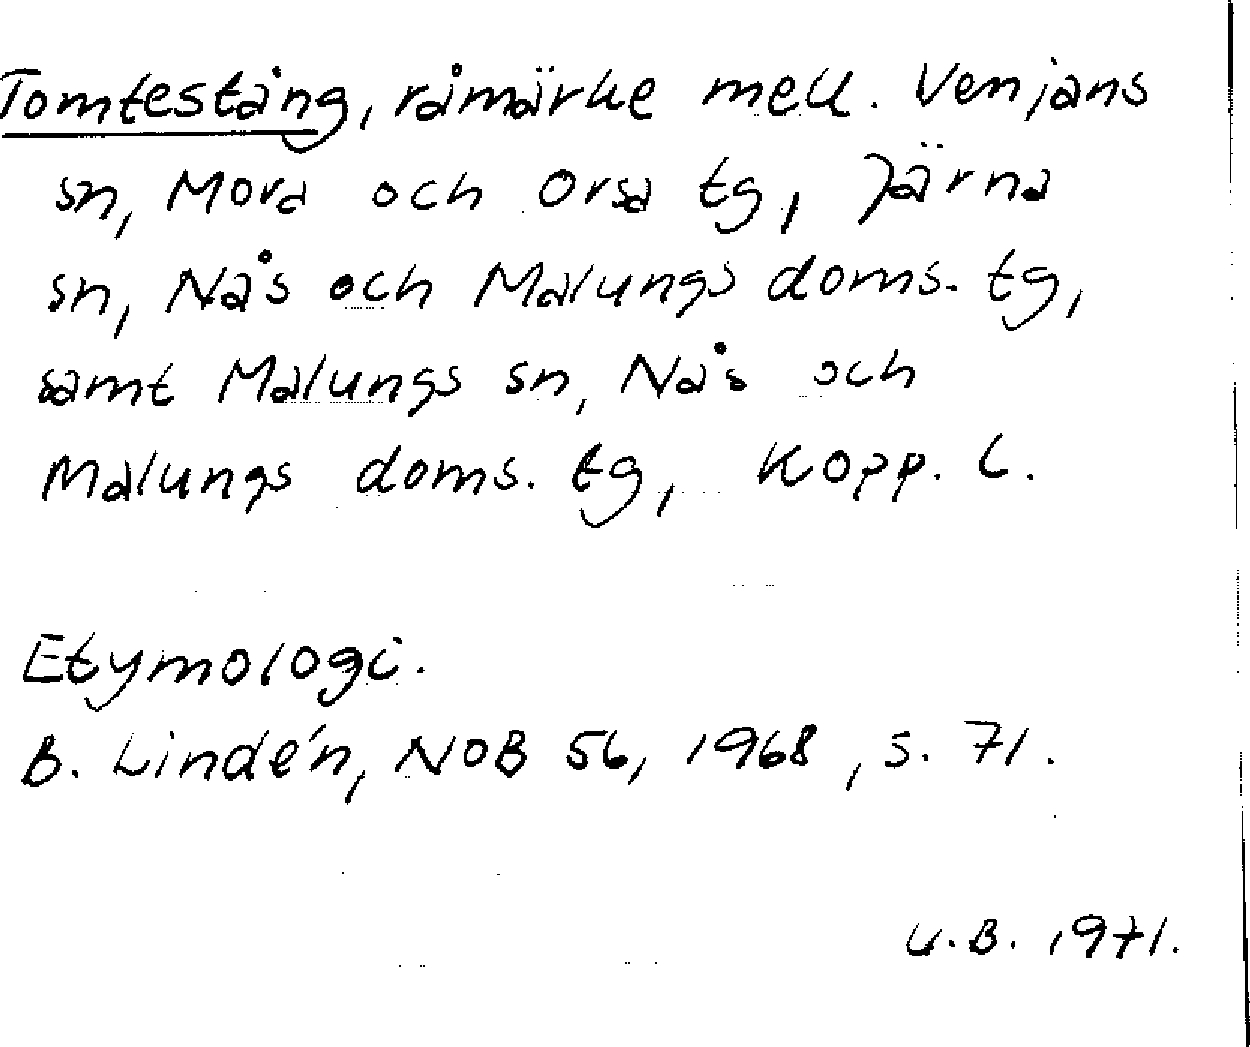 Tomtestång, råmärke mell. Venjans
sn, Mora och Orsa tg, Järna
sn, Nås och Malungs doms. tg,
samt Malungs sn, Nås och
Malungs doms. tg, Kopp. l.
Etymologi.
B. Lindén, NOB 56, 1968, s. 71.
U.B. 1971.